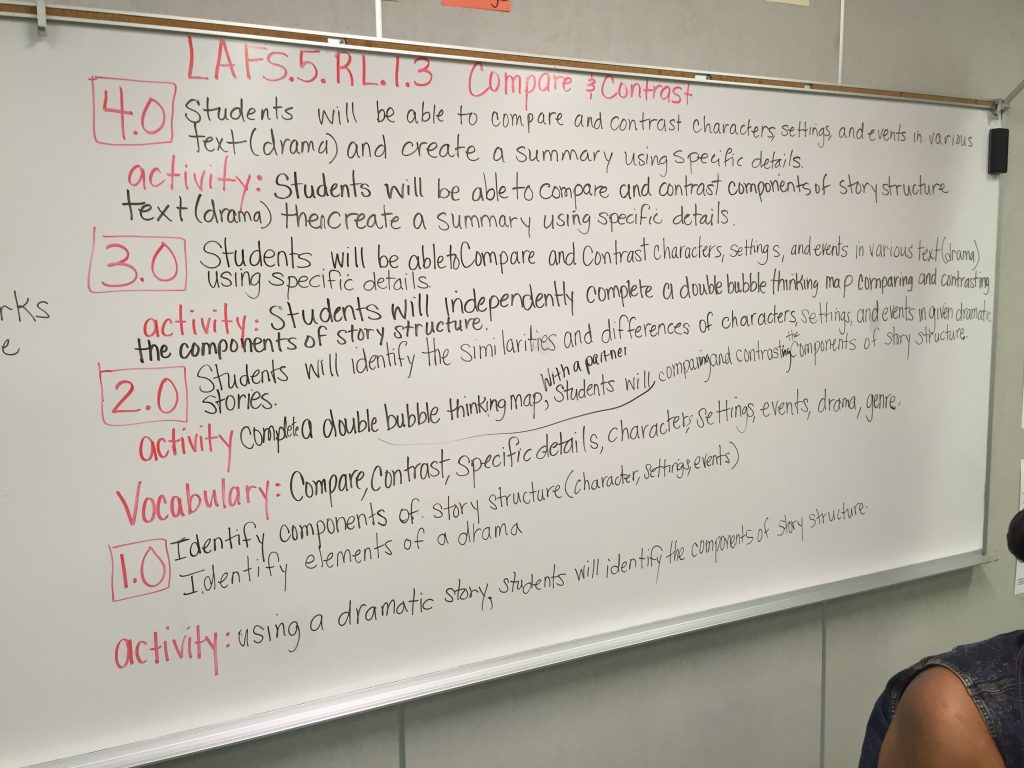 LAFS.5.RL.1.3 Compare & Contrast
4.0 Students will be able to compare and contrast characters, settings, and events in various
text (drama) and create a summary using specific details.
activity: Students will be able to compare and contrast components of story structure
text (drama) then create a summary using specific details.
3.0 Students will be able to Compare and Contrast characters, settings, and events in various text (drama)
using specific details.
activity: Students will independently complete a double bubble thinking map comparing and contrasting
the components of story structure.
2.0 Students will identify the similarities and differences of characters, settings, and events in given dramatic
stories.
with a partner
the
activity complete a double bubble thinking map, students will comparing and contrasting components of story structure.
Vocabulary: Compare, Contrast, Specific details, character, settings, events, drama, genre.
1.0 Identify components of story structure (character, settings, events)
Identify elements of a drama
activity: using a dramatic story, students will identify the components of story structure.
rks
e